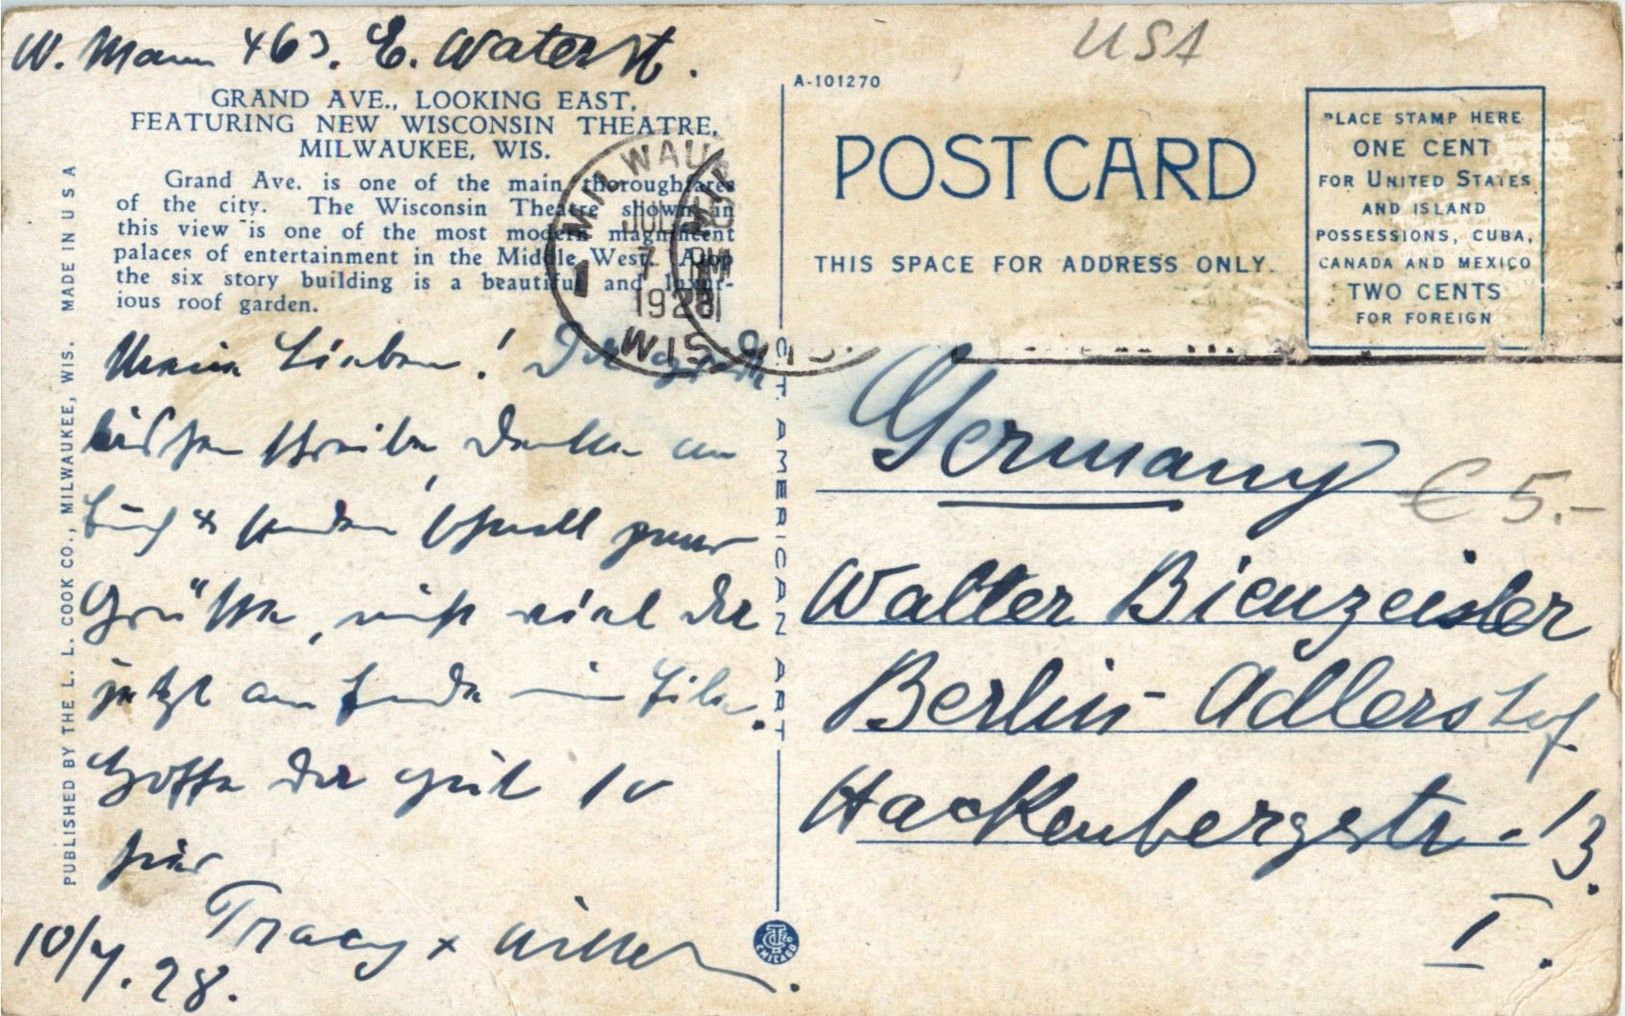 W. Mann 463. E. Water St.
USA
A-101270
GRAND AVE., LOOKING EAST,
FEATURING NEW WISCONSIN THEATRE,
MILWAUKEE, WIS.
Grand Ave. is one of the main thoroughfares
of the city. The Wisconsin Theatre shown in
this view is one of the most modern magnificent
palaces of entertainment in the Middle West. Atop
the six story building is a beautiful and luxur-
ious roof garden.
MILWAUKEE
JUL
7 PM
1928
WIS.
POST CARD
THIS SPACE FOR ADDRESS ONLY.
PLACE STAMP HERE
ONE CENT
FOR UNITED STATES
AND ISLAND
POSSESSIONS, CUBA,
CANADA AND MEXICO
TWO CENTS
FOR FOREIGN
PUBLISHED BY THE L. L. COOK CO., MILWAUKEE, WIS. MADE IN U S A
Meine Lieben!
schreiben, denken an
Euch & senden schnell
Grüsse, nicht viel da
jetzt am Ende in Eile.
Hoffe das
hier
Tracy & Willer.
10/7.28.
C.T. AMERICAN ART
CHICAGO
Germany
€ 5.-
Walter Bienzeisler
Berlin-Adlershof.
Hackenbergstr. 13.
I.